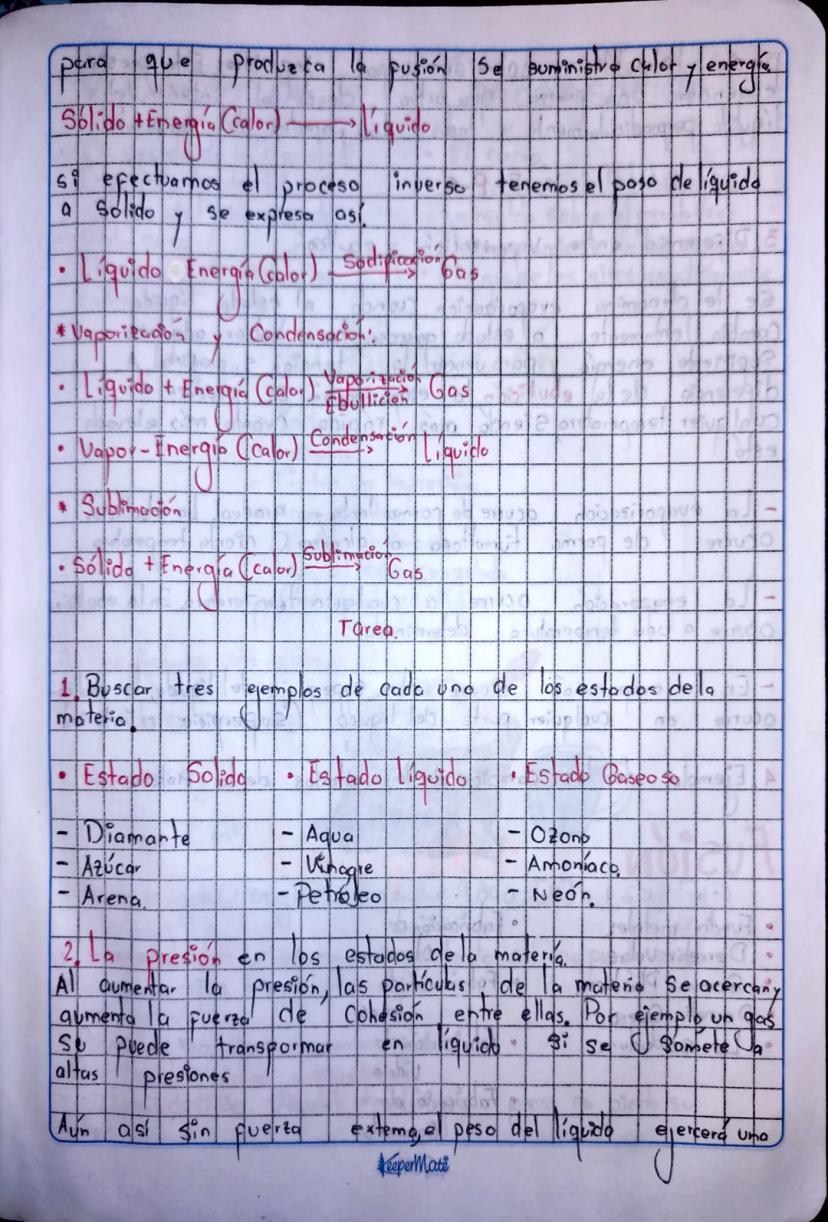 para que produzca la fusión se suministra calor y energía
Sólido + Energía (calor) → líquido
si efectuamos el proceso inverso tenemos el paso de líquido
a Solido y se expresa así.
• Líquido Energía (calor) Sodificación → Gas
* Vaporización y Condensación:
• Líquido + Energía (calor) Vaporización → Ebullición Gas
• Vapor - Energía (calor) Condensación → Líquido
* Sublimación
• Sólido + Energía (calor) Sublimación → Gas
Tarea.
1. Buscar tres ejemplos de cada uno de los estados de la
materia.
• Estado Solido • Estado líquido • Estado Gaseoso
- Diamante - Agua - Ozono
- Azúcar - Vinagre - Amoníaco.
- Arena. - Petróleo - Neón.
2. La presión en los estados de la materia.
Al aumentar la presión, las partículas de la materia se acercan y
aumenta la fuerza de Cohesión entre ellas. Por ejemplo un gas
se puede transformar en líquido si se somete a
altas presiones
Aún así sin fuerza externa, el peso del líquido ejercerá una
KeeperMate